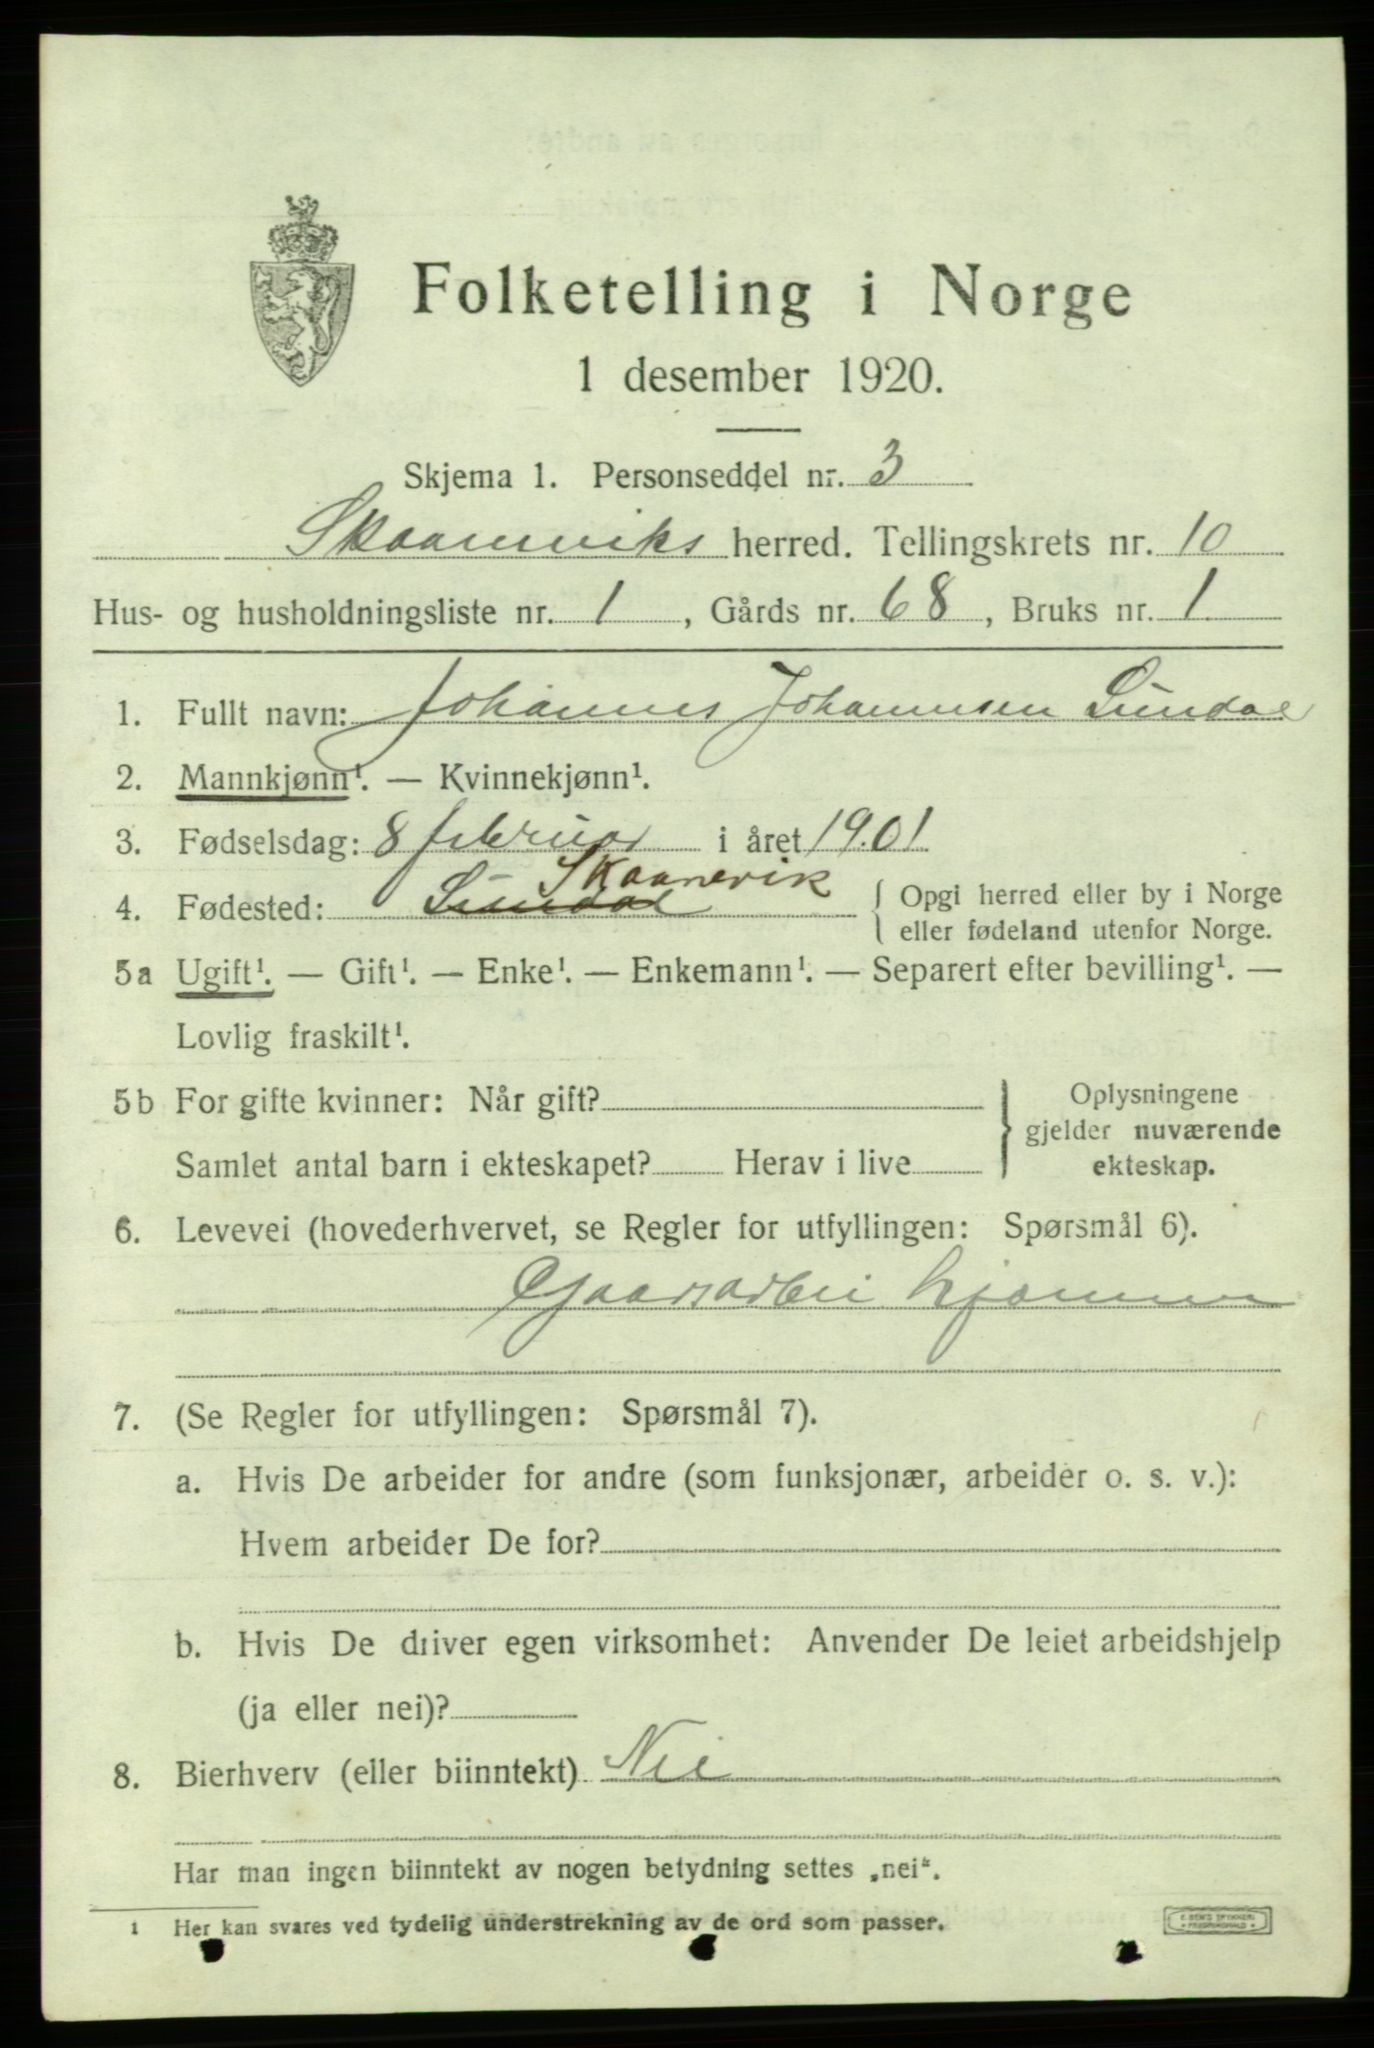 Folketelling i Norge
1 desember 1920.
Skjema 1. Personseddel nr. 3
Skaaneviks herred. Tellingskrets nr. 10
Hus- og husholdningsliste nr. 1, Gårds nr. 68, Bruks nr. 1
1. Fullt navn: Johannes Johannesen Sundal
2. Mannkjønn¹. — Kvinnekjønn¹.
3. Fødselsdag: 8 februar i året 1901
Skaanevik
4. Fødested: Sundal { Opgi herred eller by i Norge
eller fødeland utenfor Norge.
5a Ugift¹. — Gift¹. — Enke¹. — Enkemann¹. — Separert efter bevilling¹. —
Lovlig fraskilt¹.
5b For gifte kvinner: Når gift? } Oplysningene
gjelder nuværende
Samlet antal barn i ekteskapet? Herav i live
ekteskap.
6. Levevei (hovederhvervet, se Regler for utfyllingen: Spørsmål 6).
Gaarsarbei hjemme
7. (Se Regler for utfyllingen: Spørsmål 7).
a. Hvis De arbeider for andre (som funksjonær, arbeider o. s. v.):
Hvem arbeider De for?
b. Hvis De driver egen virksomhet: Anvender De leiet arbeidshjelp
(ja eller nei)?
8. Bierhverv (eller biinntekt) Nei
Har man ingen biinntekt av nogen betydning settes „nei“.
1 Her kan svares ved tydelig understrekning av de ord som passer.